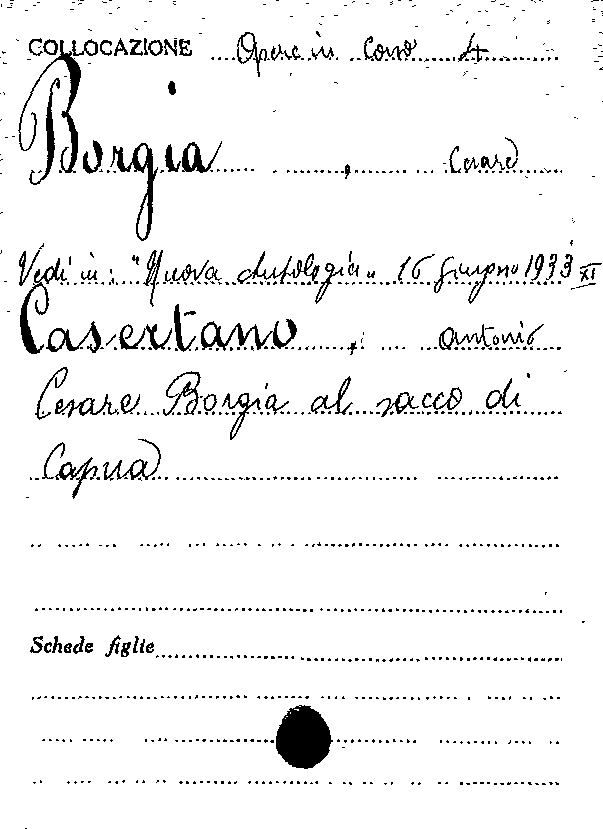 COLLOCAZIONE Opere in Corso 4
Borgia, Cesare
Vedi in: "Nuova Antologia" 16 giugno 1933 XI
Casertano, Antonio
Cesare Borgia al sacco di
Capua
Schede figlie